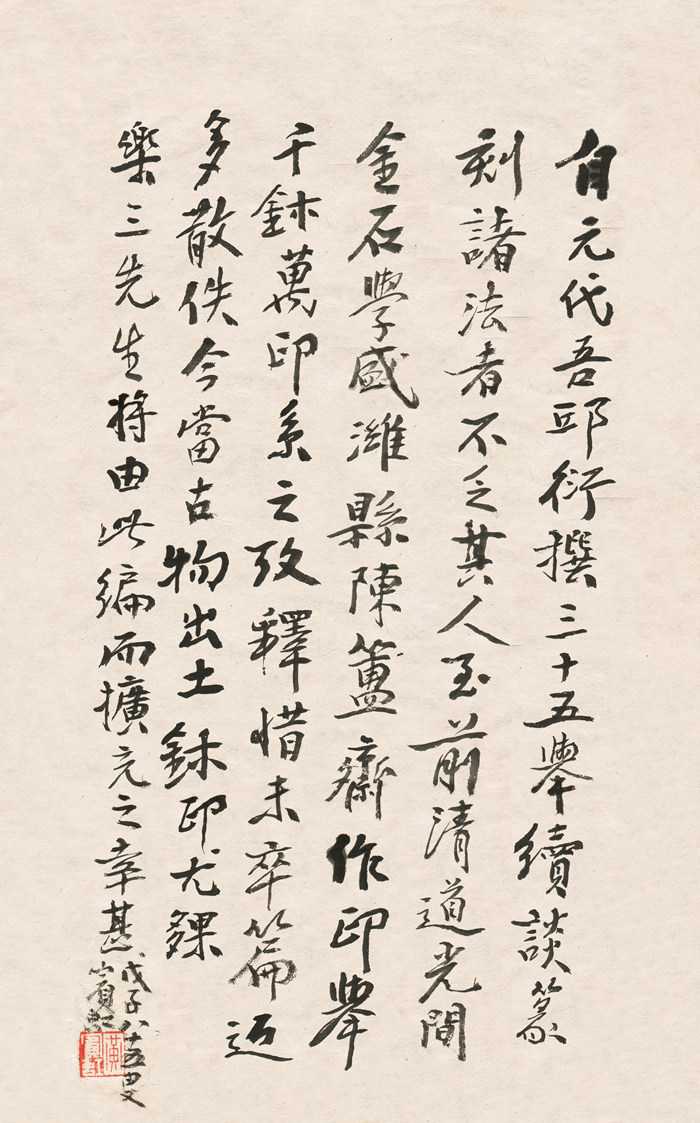 自元代吾邱衍撰三十五舉續談篆
刻諸法者不乏其人至前清道光間
金石學盛濰縣陳簠齋作印舉
千鉥萬印系之攷釋惜未卒篇迈
多散佚今當古物出土鉥印尤夥
樂三先生將由此编而擴充之幸甚
戊子八十五叟
賓虹